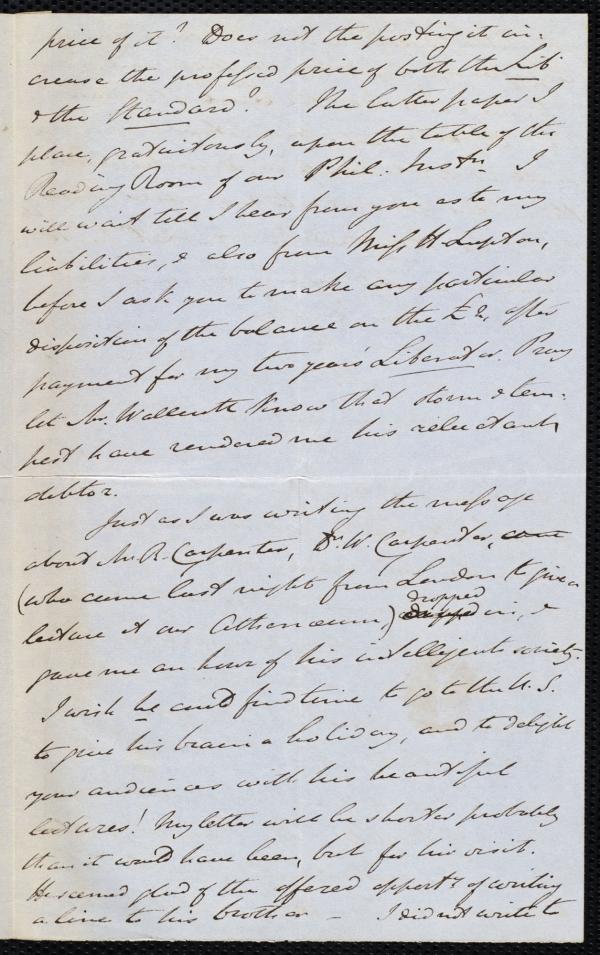 price of it? Does not the posting it in-
crease the professed price of both the Lib
& the Standard? The latter paper I
place, gratuitously, upon the table of the
Reading Room of our Phil. Instn. I
will wait till I hear from you as to my
liabilities, & also from Miss H Lupton,
before I ask you to make any particular
disposition of the balance on the £2, after
payment for my two years' Liberator. Pray
let Mr. Wallcutt know that storm & tem-
pest have rendered me his reluctant
debtor.
Just as I was writing the message
about Mr. R. Carpenter, Dr. W. Carpenter, came
(who came last night from London to give a
lecture at our Athenaeum) dropped in, &
gave me an hour of his intelligent society.
I wish he could find time to go to the U.S.
to give his brain a holiday, and to delight
your audiences with his beautiful
lectures! My letter will be shorter probably
than it would have been, but for his visit.
He seemed glad of the offered opporty. of writing
a line to his brother — I did not write to